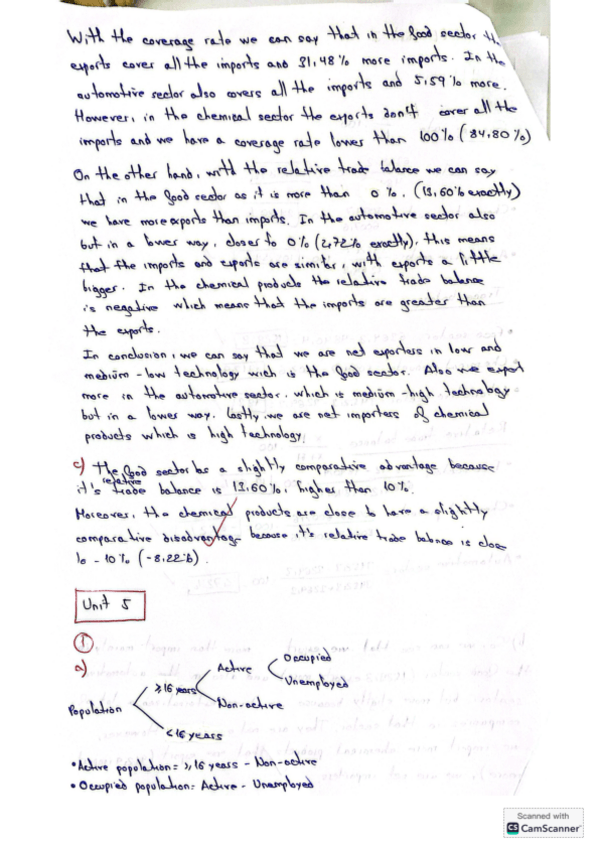 With the coverage rate we can say that in the food sector the
exports cover all the imports and 31,48% more imports. In the
automotive sector also covers all the imports and 5,59% more.
However, in the chemical sector the exports don't cover all the
imports and we have a coverage rate lower than 100% (84,80%)
On the other hand, with the relative trade balance we can say
that in the food sector as it is more than 0%, (13,60% exactly)
we have more exports than imports. In the automotive sector also
but in a lower way, closer to 0% (2,72% exactly), this means
that the imports and exports are similar, with exports a little
bigger. In the chemical products the relative trade balance
is negative which means that the imports are greater than
the exports.
In conclusion, we can say that we are net exporters in low and
medium-low technology wich is the food sector. Also we export
more in the automotive sector, which is medium-high technology
but in a lower way. Lastly we are net importers of chemical
products which is high technology.
c) The food sector has a slightly comparative advantage because
it's relative trade balance is 13,60%, higher than 10%.
Moreover, the chemical products are close to have a slightly
comparative disadvantage because it's relative trade balance is close
to -10% (-8,22%).
Unit 5
1
a)
Active
Occupied
Unemployed
≥16 years
Population
Non-active
<16 years
• Active population = ≥16 years - Non-active
• Occupied population = Active - Unemployed
Scanned with
CS CamScanner